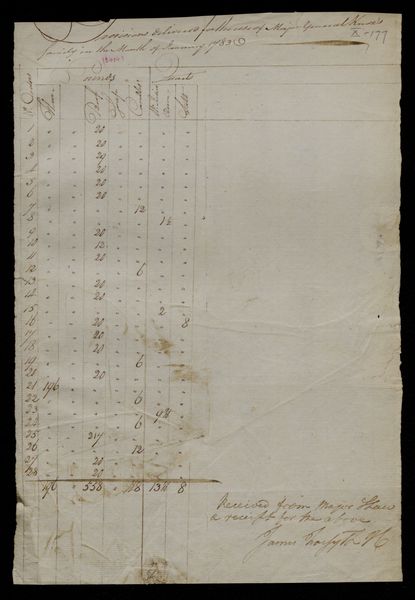 Provisions delivered for the use of Major General Knox's
family in the Month of January 1783
Pounds Quarts
N° Orders Flour Beef Soap Candles Salt
1 " 20 " " " "
2 " 20 " " " "
3 " 20 " " " "
4 " 20 " " " "
5 " 20 " " " "
6 " 20 " " " "
7 " " " 12 " "
8 " " " " 1½ "
9 " 20 " " " "
10 " 12 " " " "
11 " 20 " " " "
12 " " " 6 " "
13 " 20 " " " "
14 " 20 " " " "
15 " " " " 2 "
16 " 20 " " " 8
17 " 20 " " " "
18 " 20 " " " "
19 " " " 6 " "
20 " 20 " " " "
21 196 " " " " "
22 " " " 6 " "
23 " " " "
24 " " " 6 " "
25 " 217 " " " "
26 " " " 12 " "
27 " 20 " " " "
28 " 20 " " " "
196 " " 8
Received from Major Shaw
a receipt for the above
James Forsyth